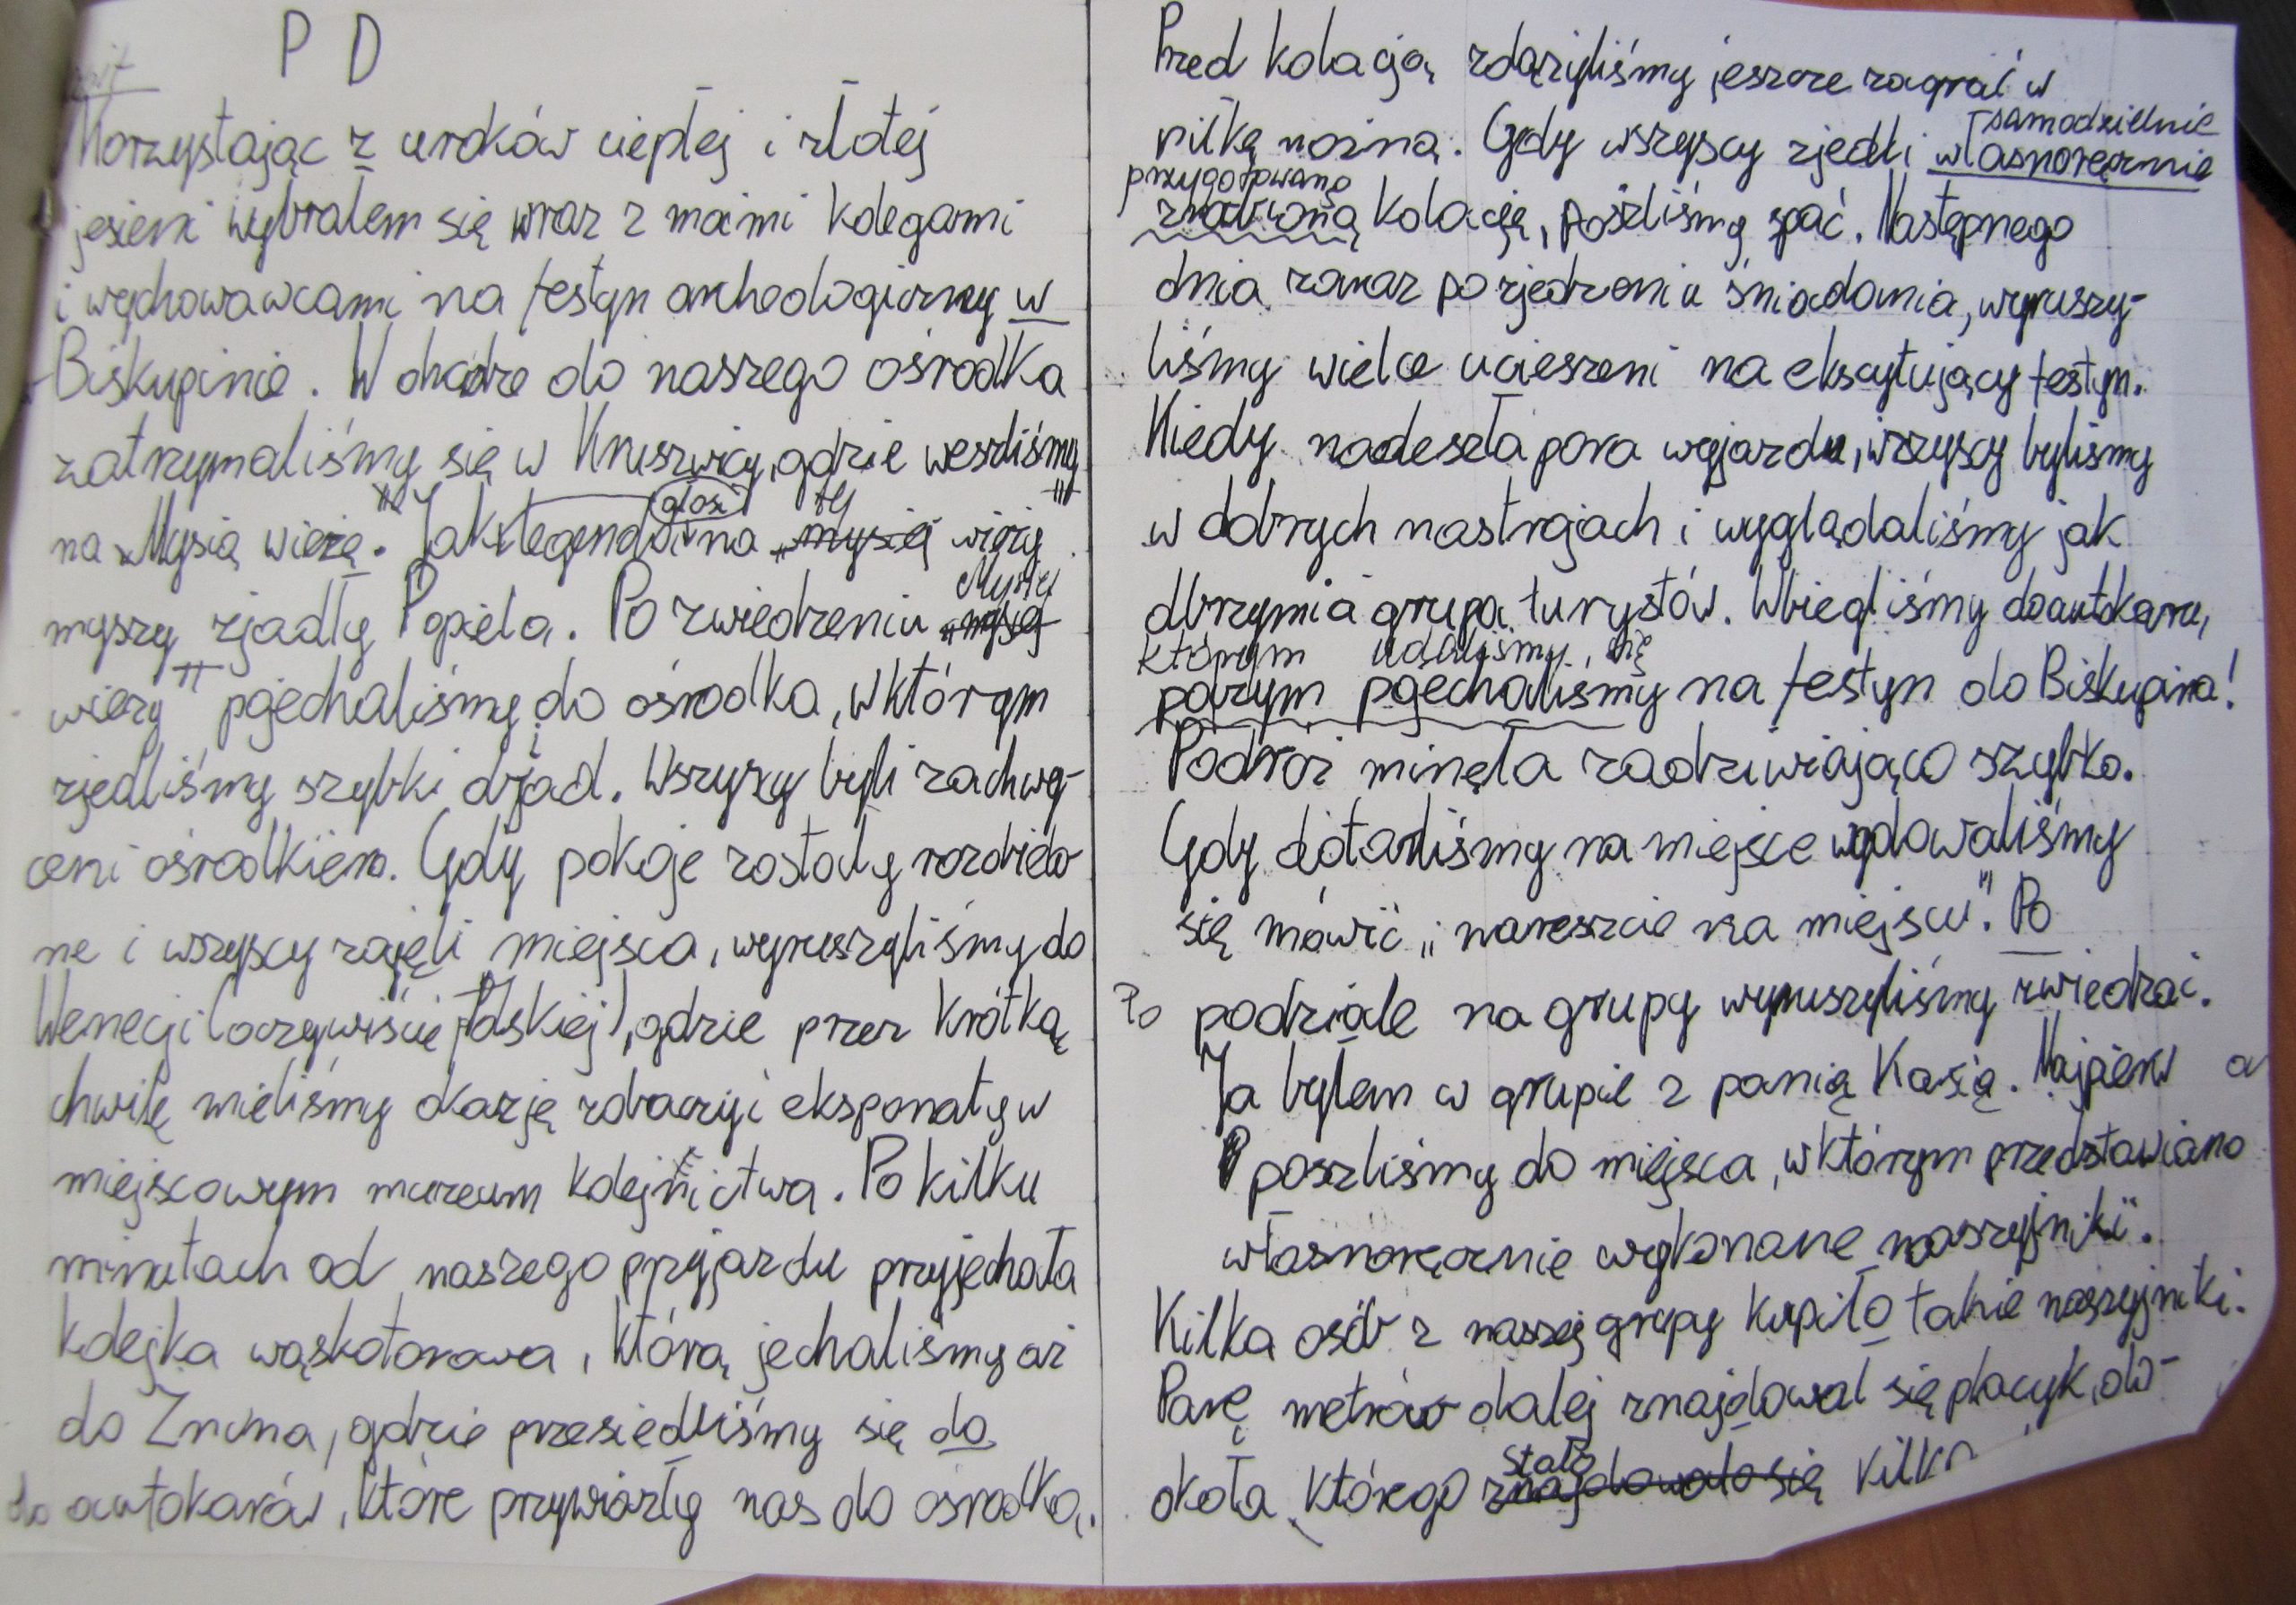 P D
Korzystając z uroków ciepłej i złotej
jesieni wybrałem się wraz z moimi kolegami
i wychowawcami na festyn archeologiczny w
Biskupinie. W drodze do naszego ośrodka
zatrzymaliśmy się w Kruszwicy, gdzie weszliśmy
na „Mysią wieżę". Jak legenda głosi na tej „mysiej wieży"
myszy zjadły Popiela. Po zwiedzeniu „Mysiej
wieży" pojechaliśmy do ośrodka, w którym
zjedliśmy szybki obiad. Wszyscy byli zachwy-
ceni ośrodkiem. Gdy pokoje zostały rozdielo
ne i wszyscy zajęli miejsca, wyruszyliśmy do
Wenecji (oczywiście Polskiej), gdzie przez krótką
chwilę mieliśmy okazję zobaczyć eksponaty w
miejscowym muzeum kolejnictwa. Po kilku
minutach od naszego przyjazdu przyjechała
kolejka wąskotorowa, którą jechaliśmy aż
do Żnina, gdzie przesiedliśmy się do
do autokarów, które przywiozły nas do ośrodka.
Przed kolacją zdążyliśmy jeszcze zagrać w
samodzielnie
piłkę nożną. Gdy wszyscy zjedli własnoręcznie
przygotowaną
zrobioną kolację, poszliśmy spać. Następnego
dnia zaraz po zjedzeniu śniadania, wyruszy-
liśmy wielce ucieszeni na ekscytujący festyn.
Kiedy nadeszła pora wyjazdu, wszyscy byliśmy
w dobrych nastrojach i wyglądaliśmy jak
olbrzymia grupa turystów. Wbiegliśmy do autokaru,
którym udaliśmy się
pojechaliśmy na festyn do Biskupina!
Podróż minęła zadziwiająco szybko.
Gdy dotarliśmy na miejsce wydawaliśmy
się mówić „nareszcie na miejscu". Po
Po podziale na grupy wyruszyliśmy zwiedzać.
Ja byłem w grupie z panią Kasią. Najpierw
poszliśmy do miejsca, w którym przedstawiano
własnoręcznie wykonane naszyjniki.
Kilka osób z naszej grupy kupiło takie naszyjniki.
Parę metrów dalej znajdował się placyk, do-
stało
okoła którego znajdowało się kilka